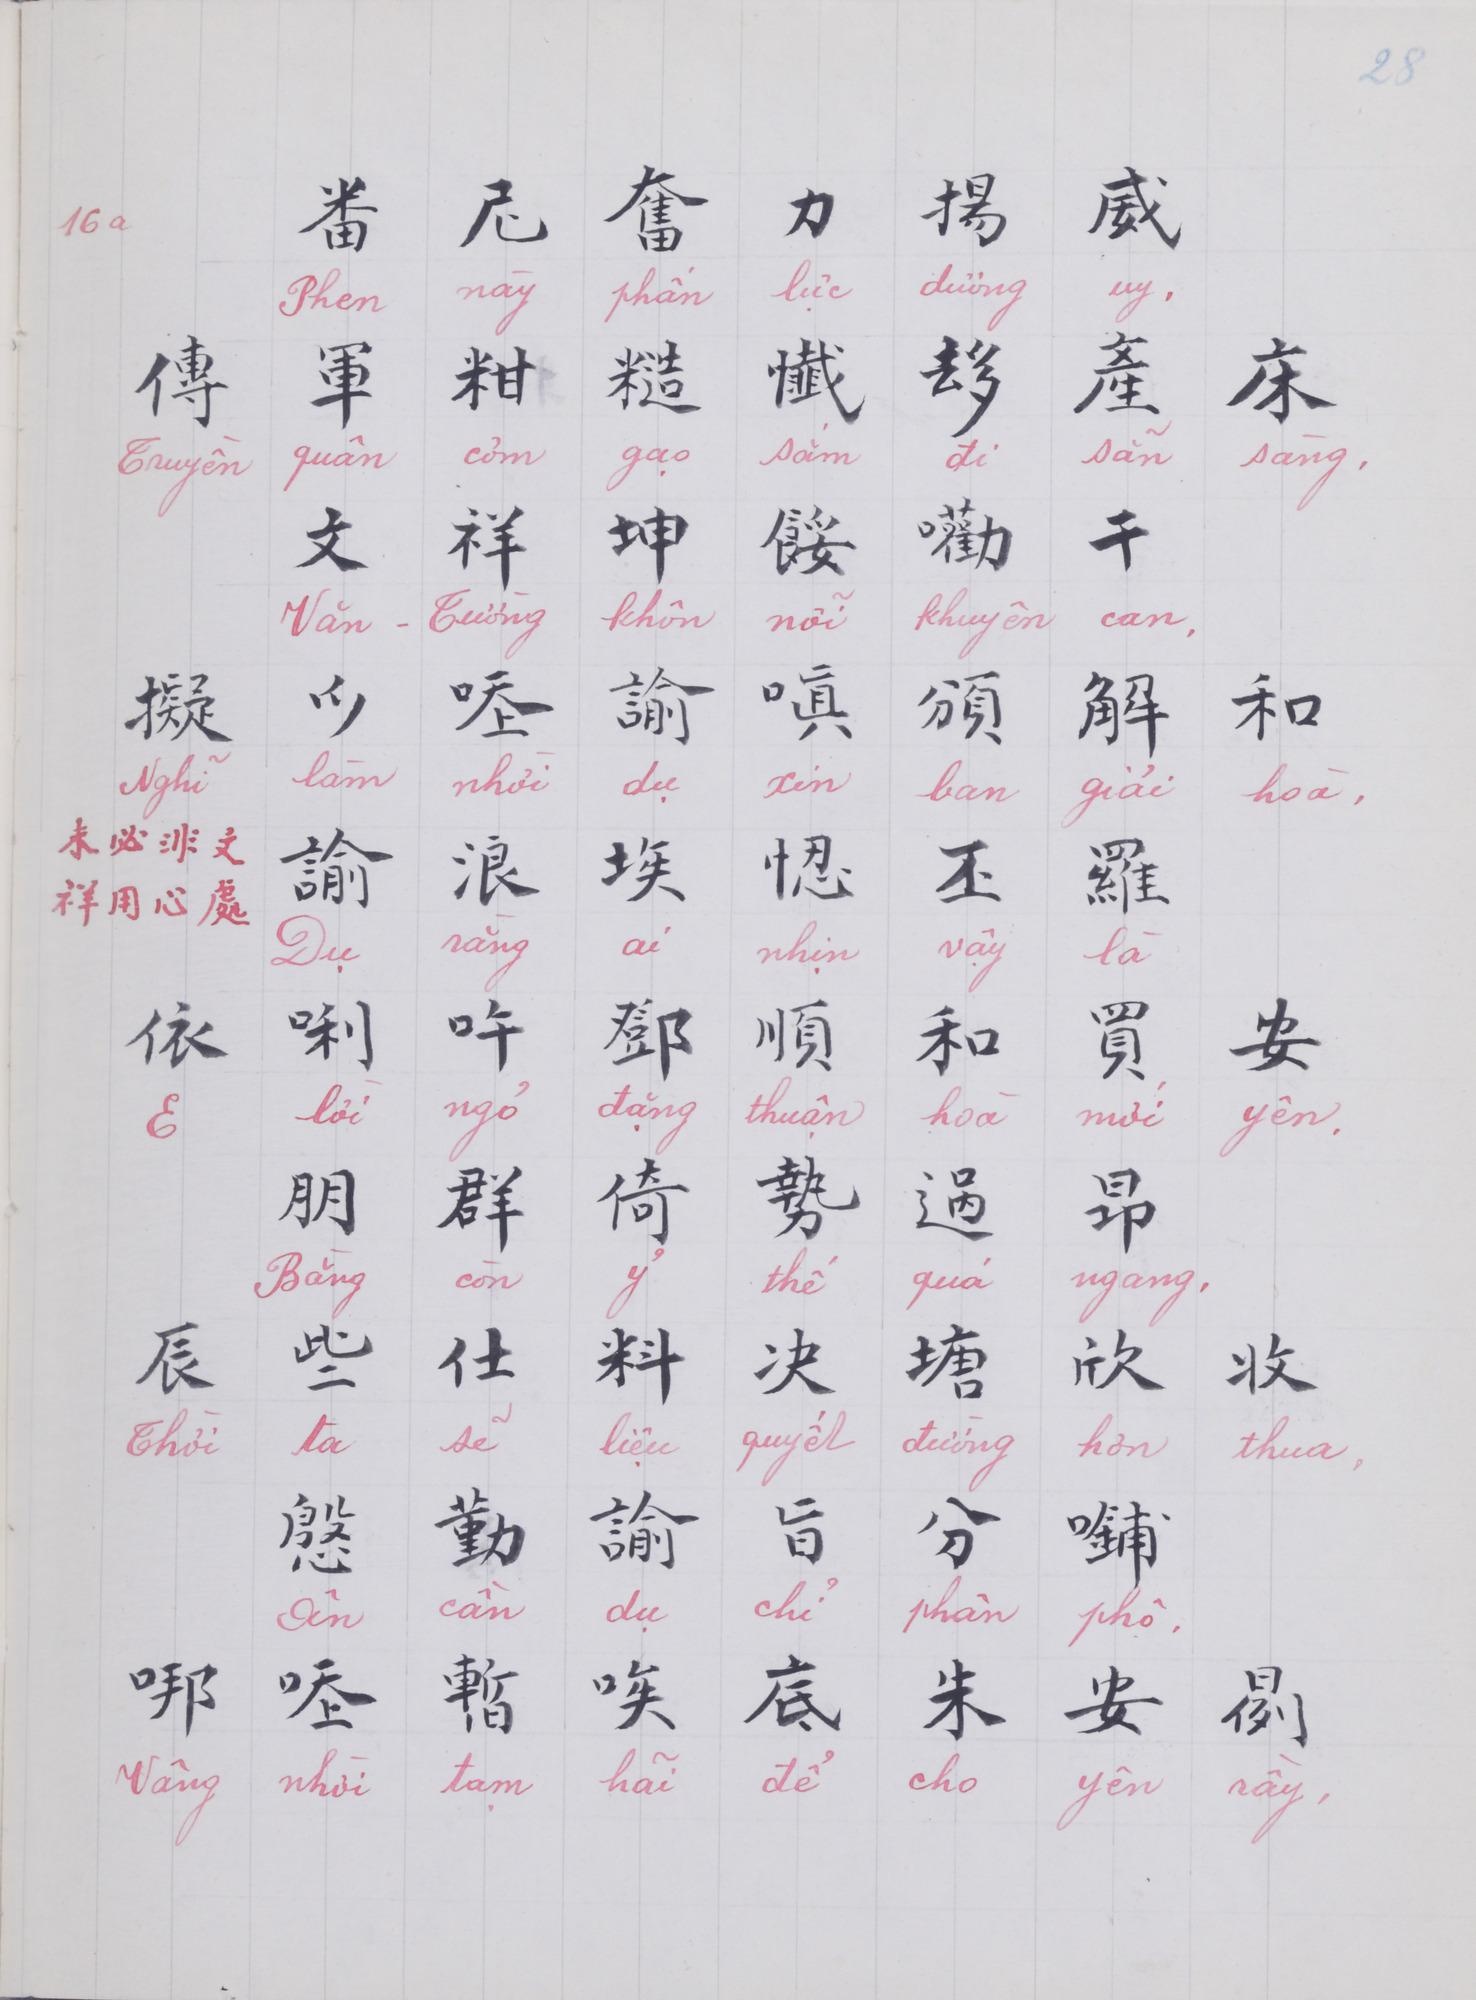 28
16a
番 尼 奮 力 揚 威
Phen này phấn lực dương uy,
傳 軍 粓 糙 懺 𠫾 產 床
Truyền quân cơm gạo sắm đi sẵn sàng,
文 祥 坤 餒 嚾 干
Văn - Tường khôn nỗi khuyên can,
擬 𪜀 𠳒 諭 嗔 頒 解 和
Nghĩ làm nhời dụ xin ban giải hoà,
未 必 非 文
祥 用 心 處
諭 浪 埃 𢚼 丕 羅
Dụ rằng ai nhịn vậy là
依 唎 吘 鄧 順 和 買 安
E lời ngỏ đặng thuận hoà mới yên.
朋 群 倚 勢 過 昂
Bằng còn ỷ thế quá ngang,
辰 些 仕 料 决 塘 欣 收
Thời ta sẽ liệu quyết đường hơn thua,
慇 勤 諭 旨 分 
Ân cần dụ chỉ phân phô,
哪 𠳒 暫 唉 底 朱 安 𠉞
Vâng nhời tạm hãi để cho yên rầy,